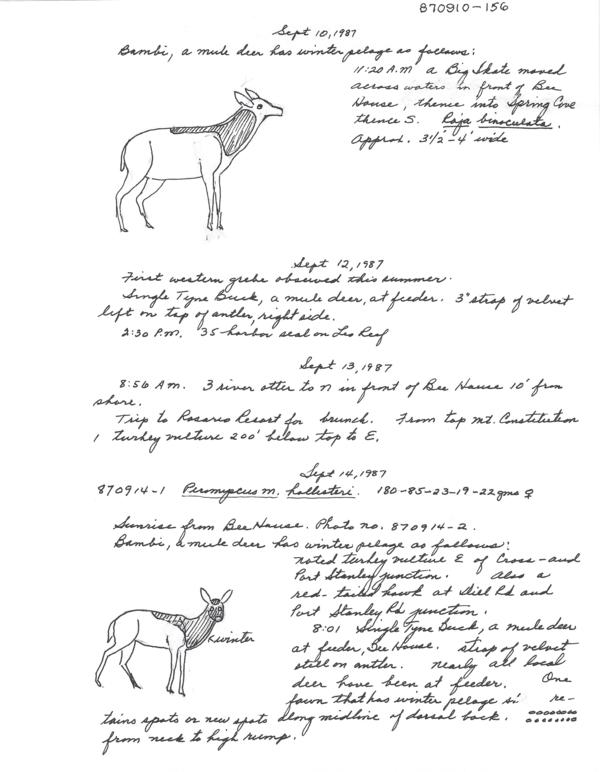 870910-156
Sept 10, 1987
Bambi, a mule deer has winter pelage as follows:
11:20 A.M a Big Skate moved
across waters in front of Bee
House, thence into Spring Cove
thence S. Raja binoculata.
Approx. 3½'-4' wide
Sept 12, 1987
First western grebe observed this summer.
Single Tyne Buck, a mule deer, at feeder. 3" strap of velvet
left on top of antler, right side.
2:30 P.M. 35-harbor seal on Leo Reef
Sept 13, 1987
8:56 A.M. 3 river otter to N in front of Bee House 10' from
shore.
Trip to Rosario Resort for brunch. From top Mt. Constitution
1 turkey vulture 200' below top to E.
Sept 14, 1987
870914-1 Peromyscus m. hollisteri. 180-85-23-19-22gms ♀
Sunrise from Bee House. Photo no. 870914-2.
Bambi, a mule deer has winter pelage as follows:
noted turkey vulture E of Cross-and
Port Stanley junction. Also a
red-tailed hawk at Diel Rd and
Port Stanley Rd junction.
8:01 Single Tyne Buck, a mule deer
at feeder, Bee House. strap of velvet
still on antler. nearly all local
deer have been at feeder. One
fawn that has winter pelage re-
winter
tains spots or new spots along midline of dorsal back.
from neck to high rump.